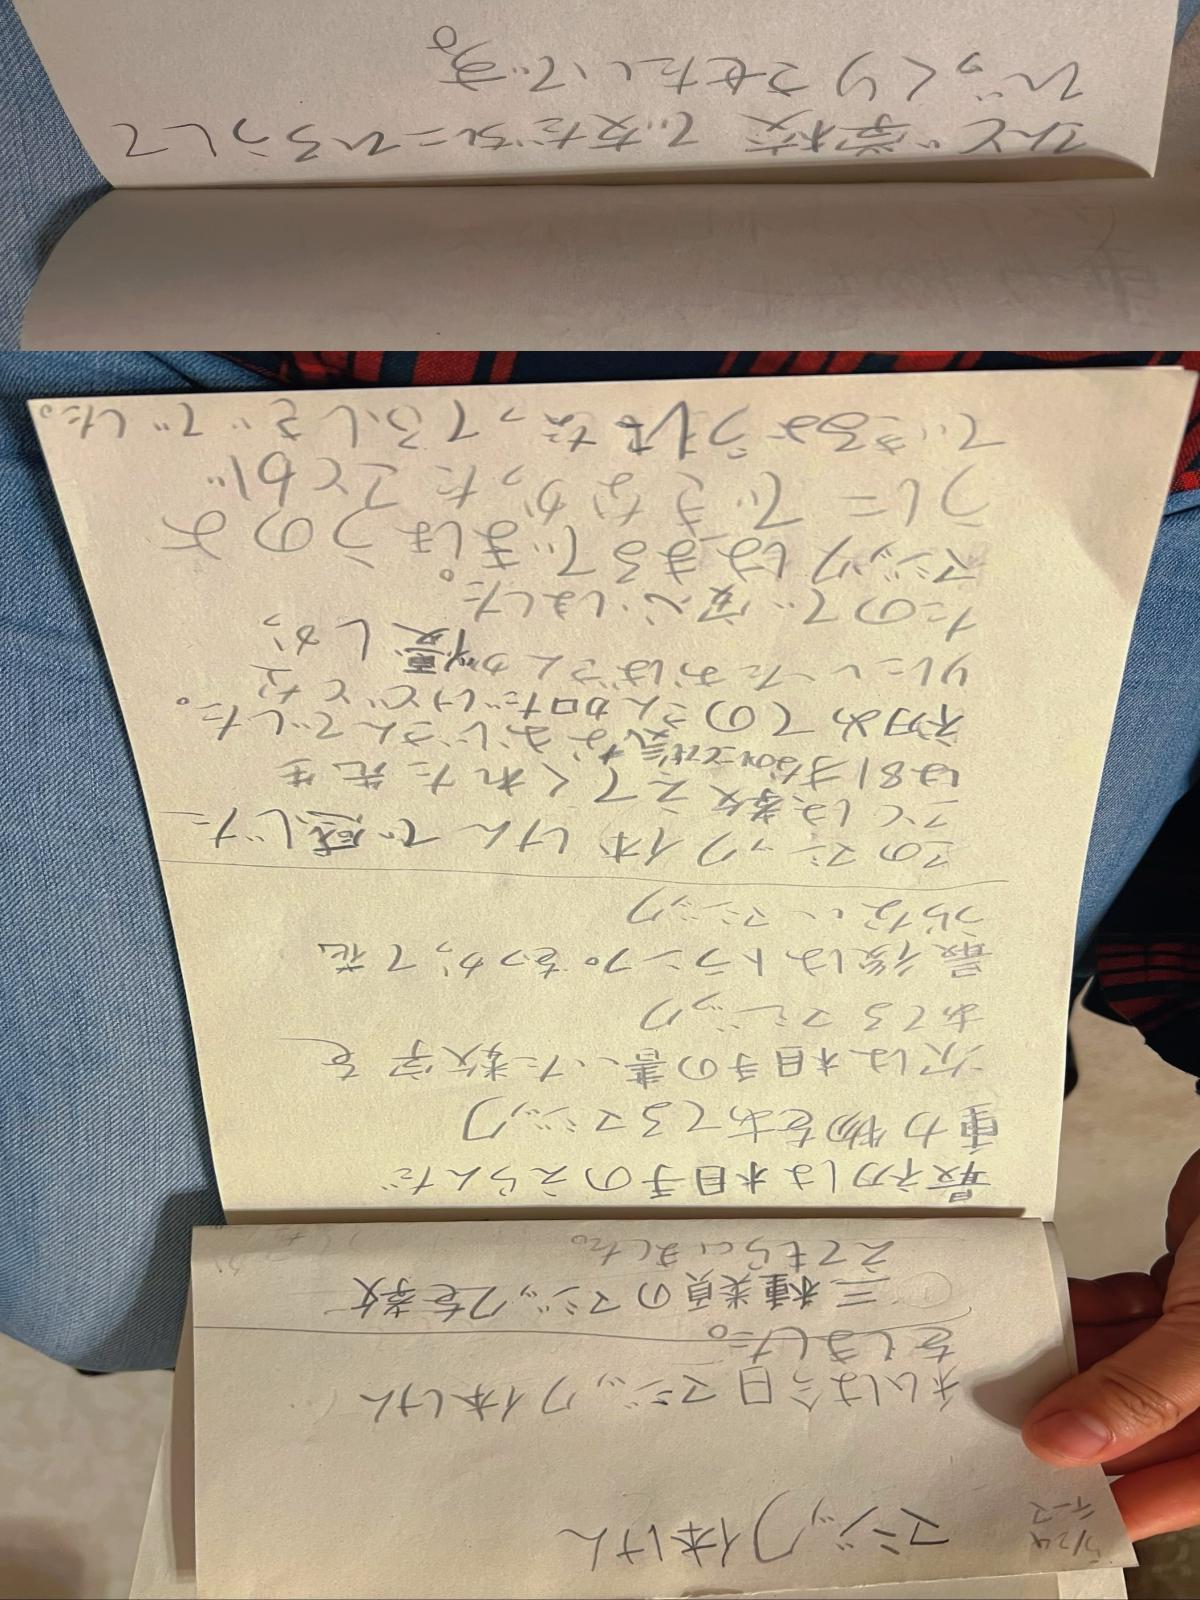 5/24
テーマ
マジック体けん
私は今日マジック体けん
をしました。
三種類のマジックを教
えてもらいました。
最初は相手のえらんだ
重力物をあてるマジック
次は相手の書いた数字を
あてるマジック
最後はトランプをつかって花
つらないマジック
このマジック体けんで感じた
ことは、教えてくれた先生
は81才なのに元気なおじさんでした。
初めてのさん加だけどとな
りにいたおばさんが優しかっ
たので安心しました。
マジックはまるでまほうのよ
うにできなかったことが
できるようになってふしぎでした。
こんど学校で友だちにひろうして
びっくりさせたいです。